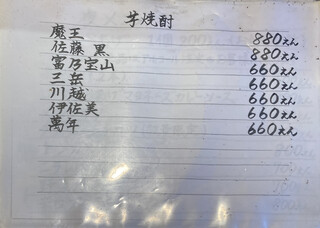 芋焼酎
魔王 880えん
佐藤 黒 880えん
富乃宝山 660えん
三岳 660えん
川越 660えん
伊佐美 660えん
萬年 660えん